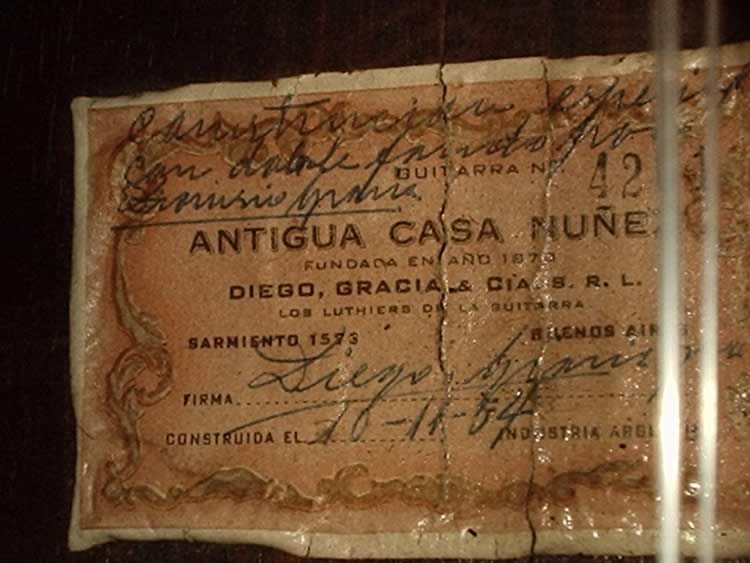 Construccion especial
con doble fondo por
Dionisio Gracia
GUITARRA Nº 42
ANTIGUA CASA NUÑE
FUNDADA EN AÑO 1870
DIEGO, GRACIA & Cia. S. R. L.
LOS LUTHIERS DE LA GUITARRA
SARMIENTO 1573 BUENOS AIRES
FIRMA Diego Gracia
CONSTRUIDA EL 20-11-54 INDUSTRIA ARGE